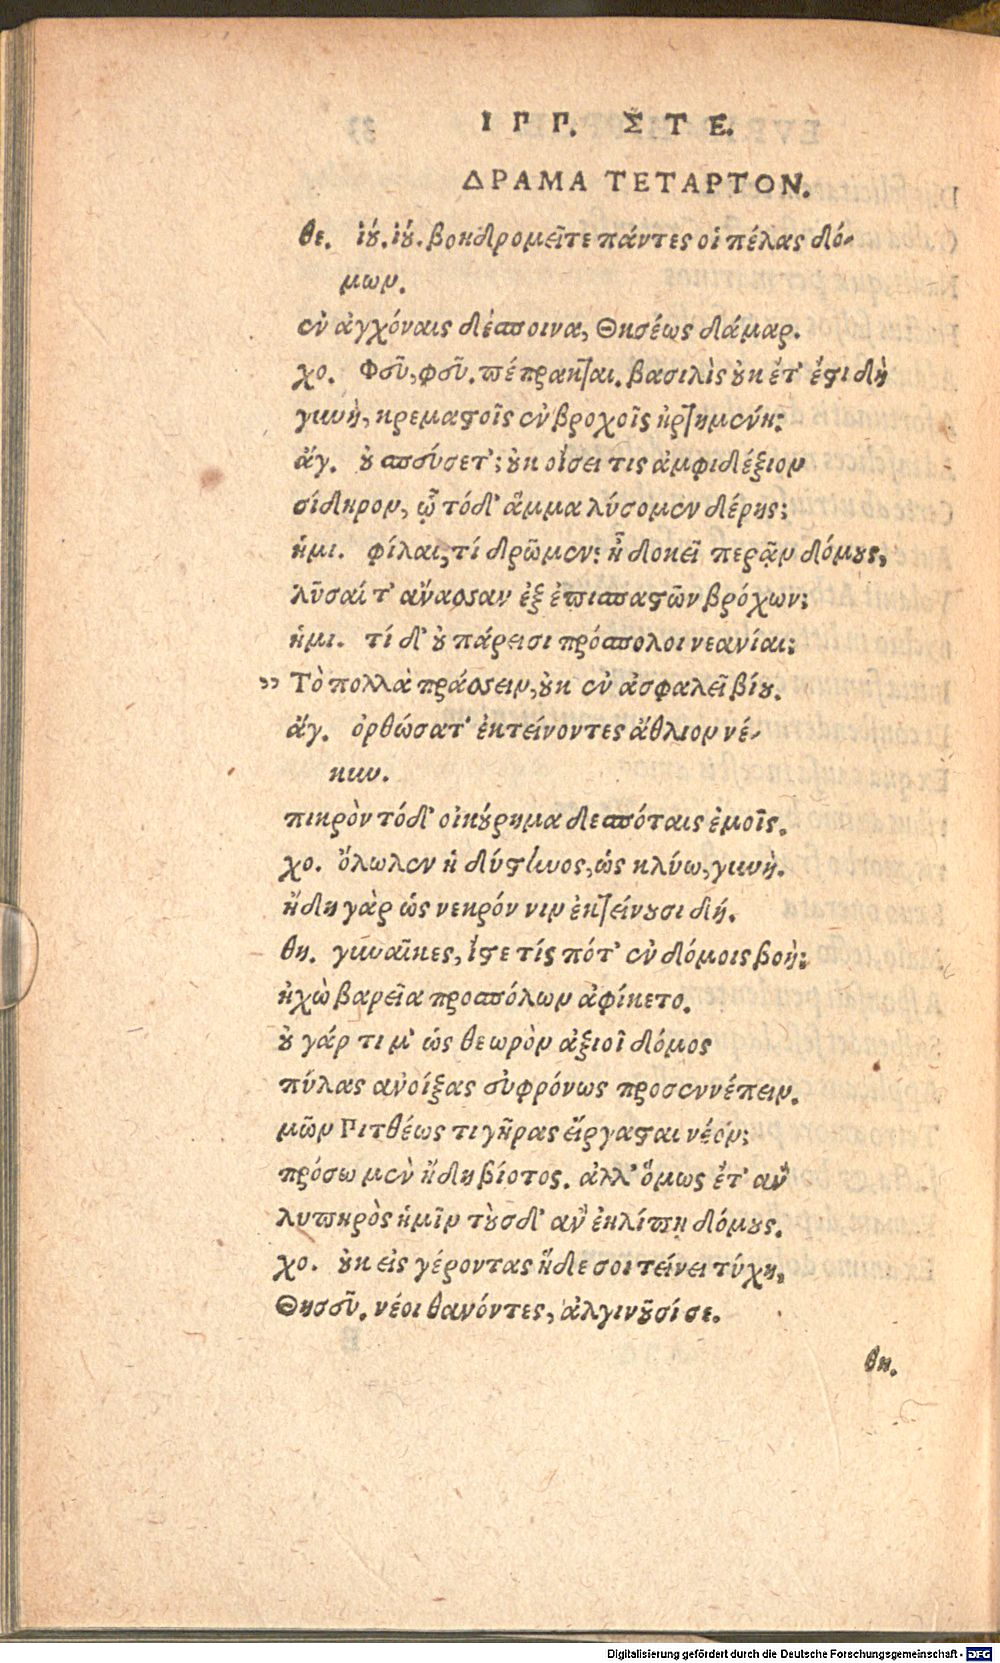 ΙΠΠ. ΣΤΕ.
ΔΡΑΜΑ ΤΕΤΑΡΤΟΝ.
θε. ἰού. ἰού. βοηδρομεῖτε πάντες οἱ πέλας δό-
μων.
ἐν ἀγχόναις δέσποινα, Θησέως δάμαρ.
χο. Φεῦ, φεῦ. πέπρακται. βασιλὶς οὐκ ἔτ' ἔστι δὴ
γυνὴ, κρεμαστοῖς ἐν βροχοῖς ἠρτημένη:
ἄγ. οὐ σπεύσετ'; οὐκ οἴσει τις ἀμφιδέξιον
σίδηρον, ᾧ τόδ' ἅμμα λύσομεν δέρης;
ἡμι. φίλαι, τί δρῶμεν: ἦ δοκεῖ περᾷν δόμους,
λῦσαί τ' ἄνασσαν ἐξ ἐπισπαστῶν βρόχων;
ἡμι. τί δ' οὐ πάρεισι πρόσπολοι νεανίαι;
" Τὸ πολλὰ πράσσειν, οὐκ ἐν ἀσφαλεῖ βίου.
ἄγ. ὀρθώσατ' ἐκτείνοντες ἄθλιον νέ-
κυν.
πικρὸν τόδ' οἰκούρημα δεσπόταις ἐμοῖς.
χο. ὄλωλεν ἡ δύστηνος, ὡς κλύω, γυνὴ.
ἤδη γὰρ ὡς νεκρόν νιν ἐκτείνουσι δή.
θη. γυναῖκες, ἴστε τίς πότ' ἐν δόμοις βοὴ;
ἠχὼ βαρεῖα προσπόλων ἀφίκετο.
οὐ γάρ τι μ' ὡς θεωρὸν ἀξιοῖ δόμος
πύλας ἀνοίξας εὐφρόνως προσεννέπειν.
μῶν Πιτθέως τι γῆρας εἴργασται νέον;
πρόσω μὲν ἤδη βίοτος. ἀλλ' ὅμως ἔτ' ἂν
λυπηρὸς ἡμῖν τούσδ' ἂν ἐκλίπῃ δόμους.
χο. οὐκ εἰς γέροντας ἥδε σοι τείνει τύχη,
Θησεῦ. νέοι θανόντες, ἀλγινοῦσί σε.
θη.
Digitalisierung gefördert durch die Deutsche Forschungsgemeinschaft - DFG